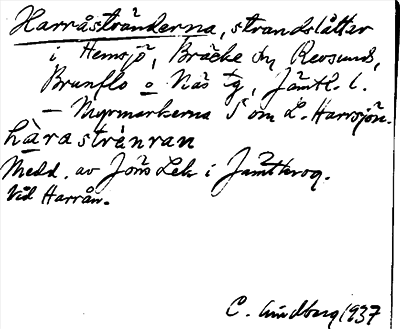 Harråstränderna, strandslåttar
i Hemsjö, Bräcke sn, Revsund,
Brunflo o Näs tg, Jämtl. l.
– Myrmarkerna S om L. Harrsjön.
hàrastrànran
Medd. av Jöns Lek i Jämtkrog.
Vid Harrån.
C. Lindberg 1937